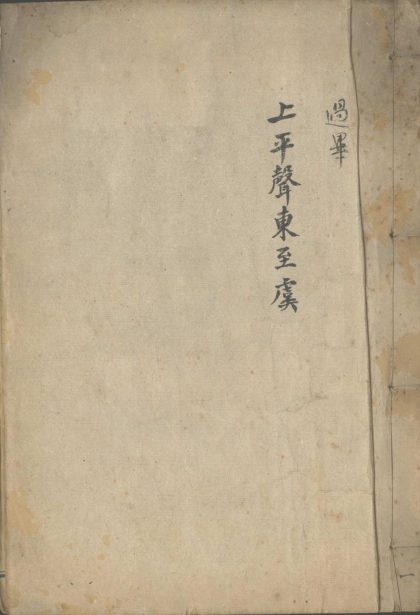 過畢
上平聲東至虞
一